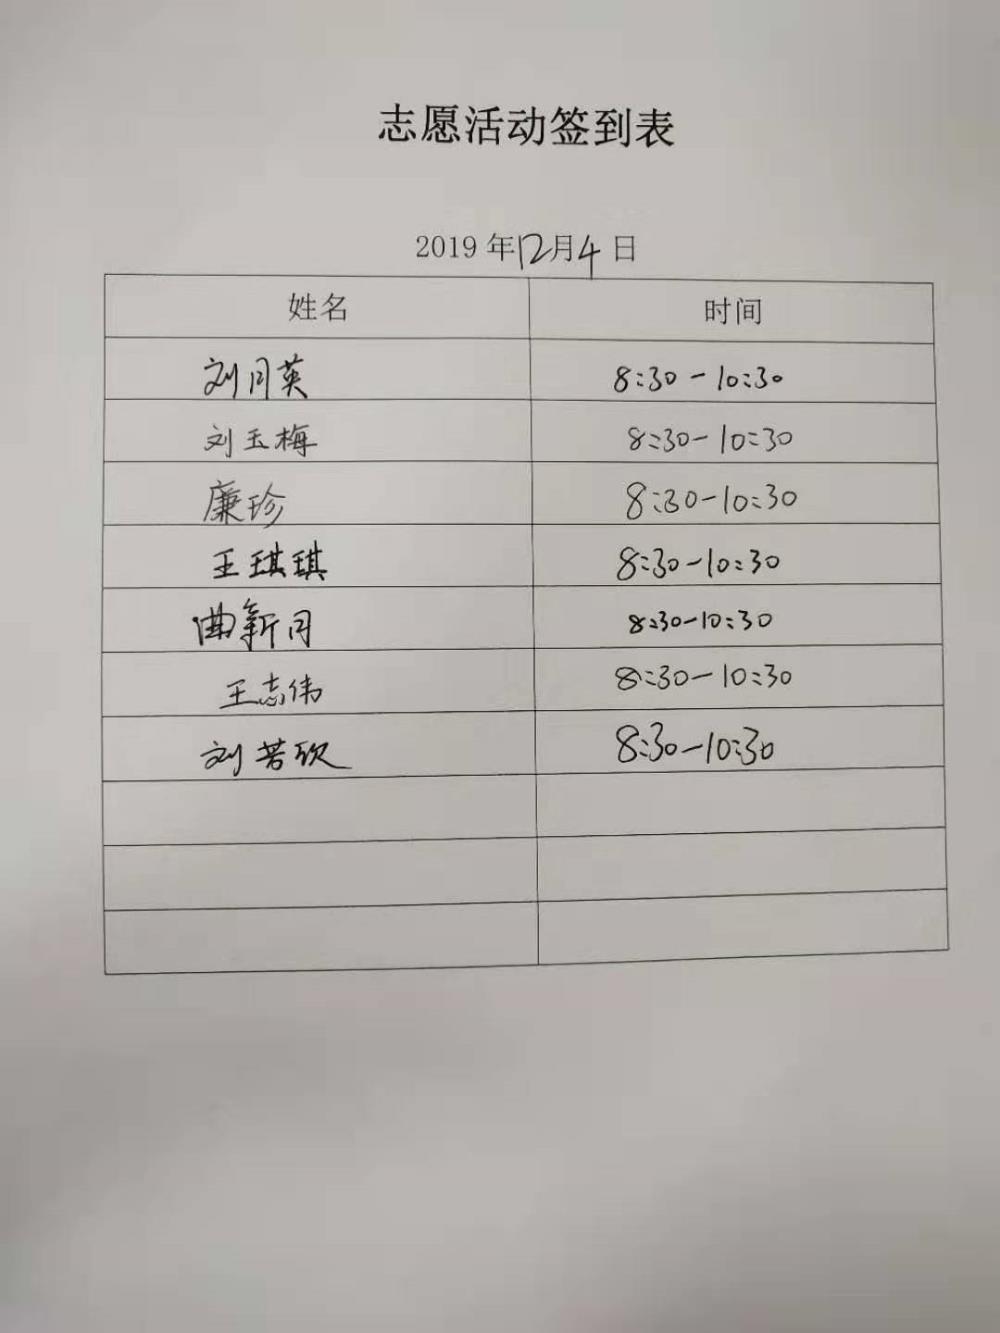 志愿活动签到表
2019年12月4日
姓名 时间
刘月英 8:30-10:30
刘玉梅 8:30-10:30
廉珍 8:30-10:30
王琪琪 8:30-10:30
曲新月 8:30-10:30
王志伟 8:30-10:30
刘若钦 8:30-10:30